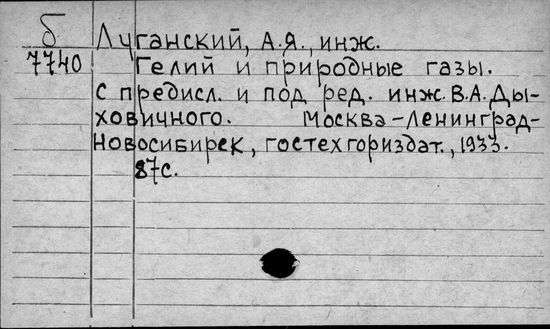 Б Луганский, А.Я., инж.
7740 Гелий и природные газы.
с предисл. и под ред. инж. В.А. Ды-
ховичного. Москва-Ленинград-
Новосибирск, гостехгориздат., 1933.
87с.